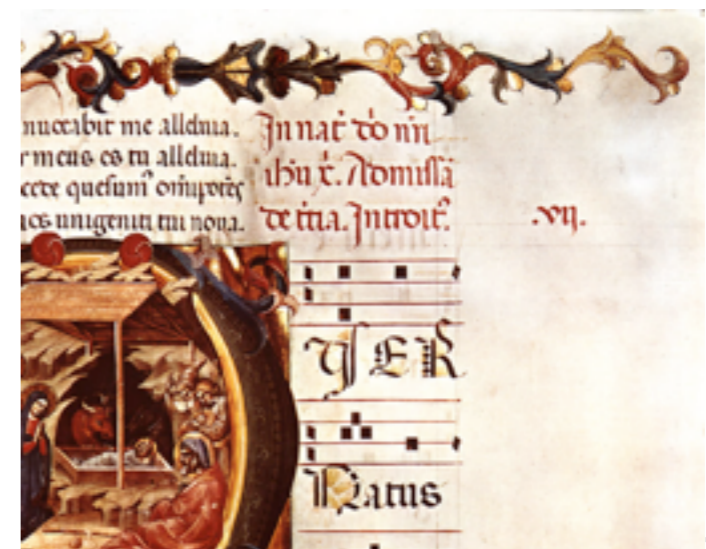 nuocabit me alleluia.
r meus es tu alleluia.
cete quesum̄ om̄ipotēs
unigeniti tui noua.
In nat̄ do nr̄i
ihū x̄. Ad missā
de t̄tia. Introit̄.
.vij.
YER
Natus